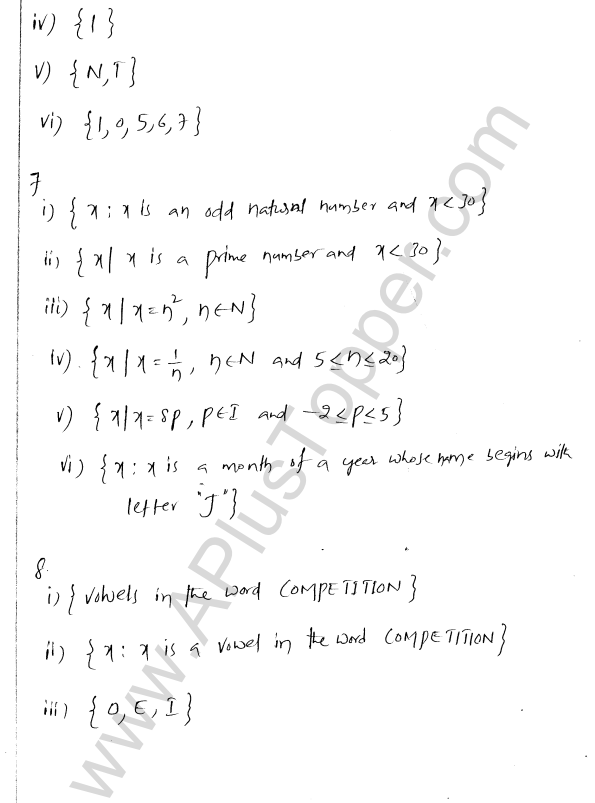 iv) {1}
v) {N,T}
vi) {1, 0, 5, 6, 7}
7
i) {x : x is an odd natural number and x < 30}
ii) {x | x is a prime number and x < 30}
iii) {x | x = n², n ∈ N}
iv). {x | x = 1/n, n ∈ N and 5 ≤ n ≤ 20}
v) {x | x = 8p, p ∈ I and -2 ≤ p ≤ 5}
vi) {x : x is a month of a year whose name begins with
letter "J"}
8.
i) {vowels in the word COMPETITION}
ii) {x : x is a vowel in the word COMPETITION}
iii) {O, E, I}
www.APlusTopper.com